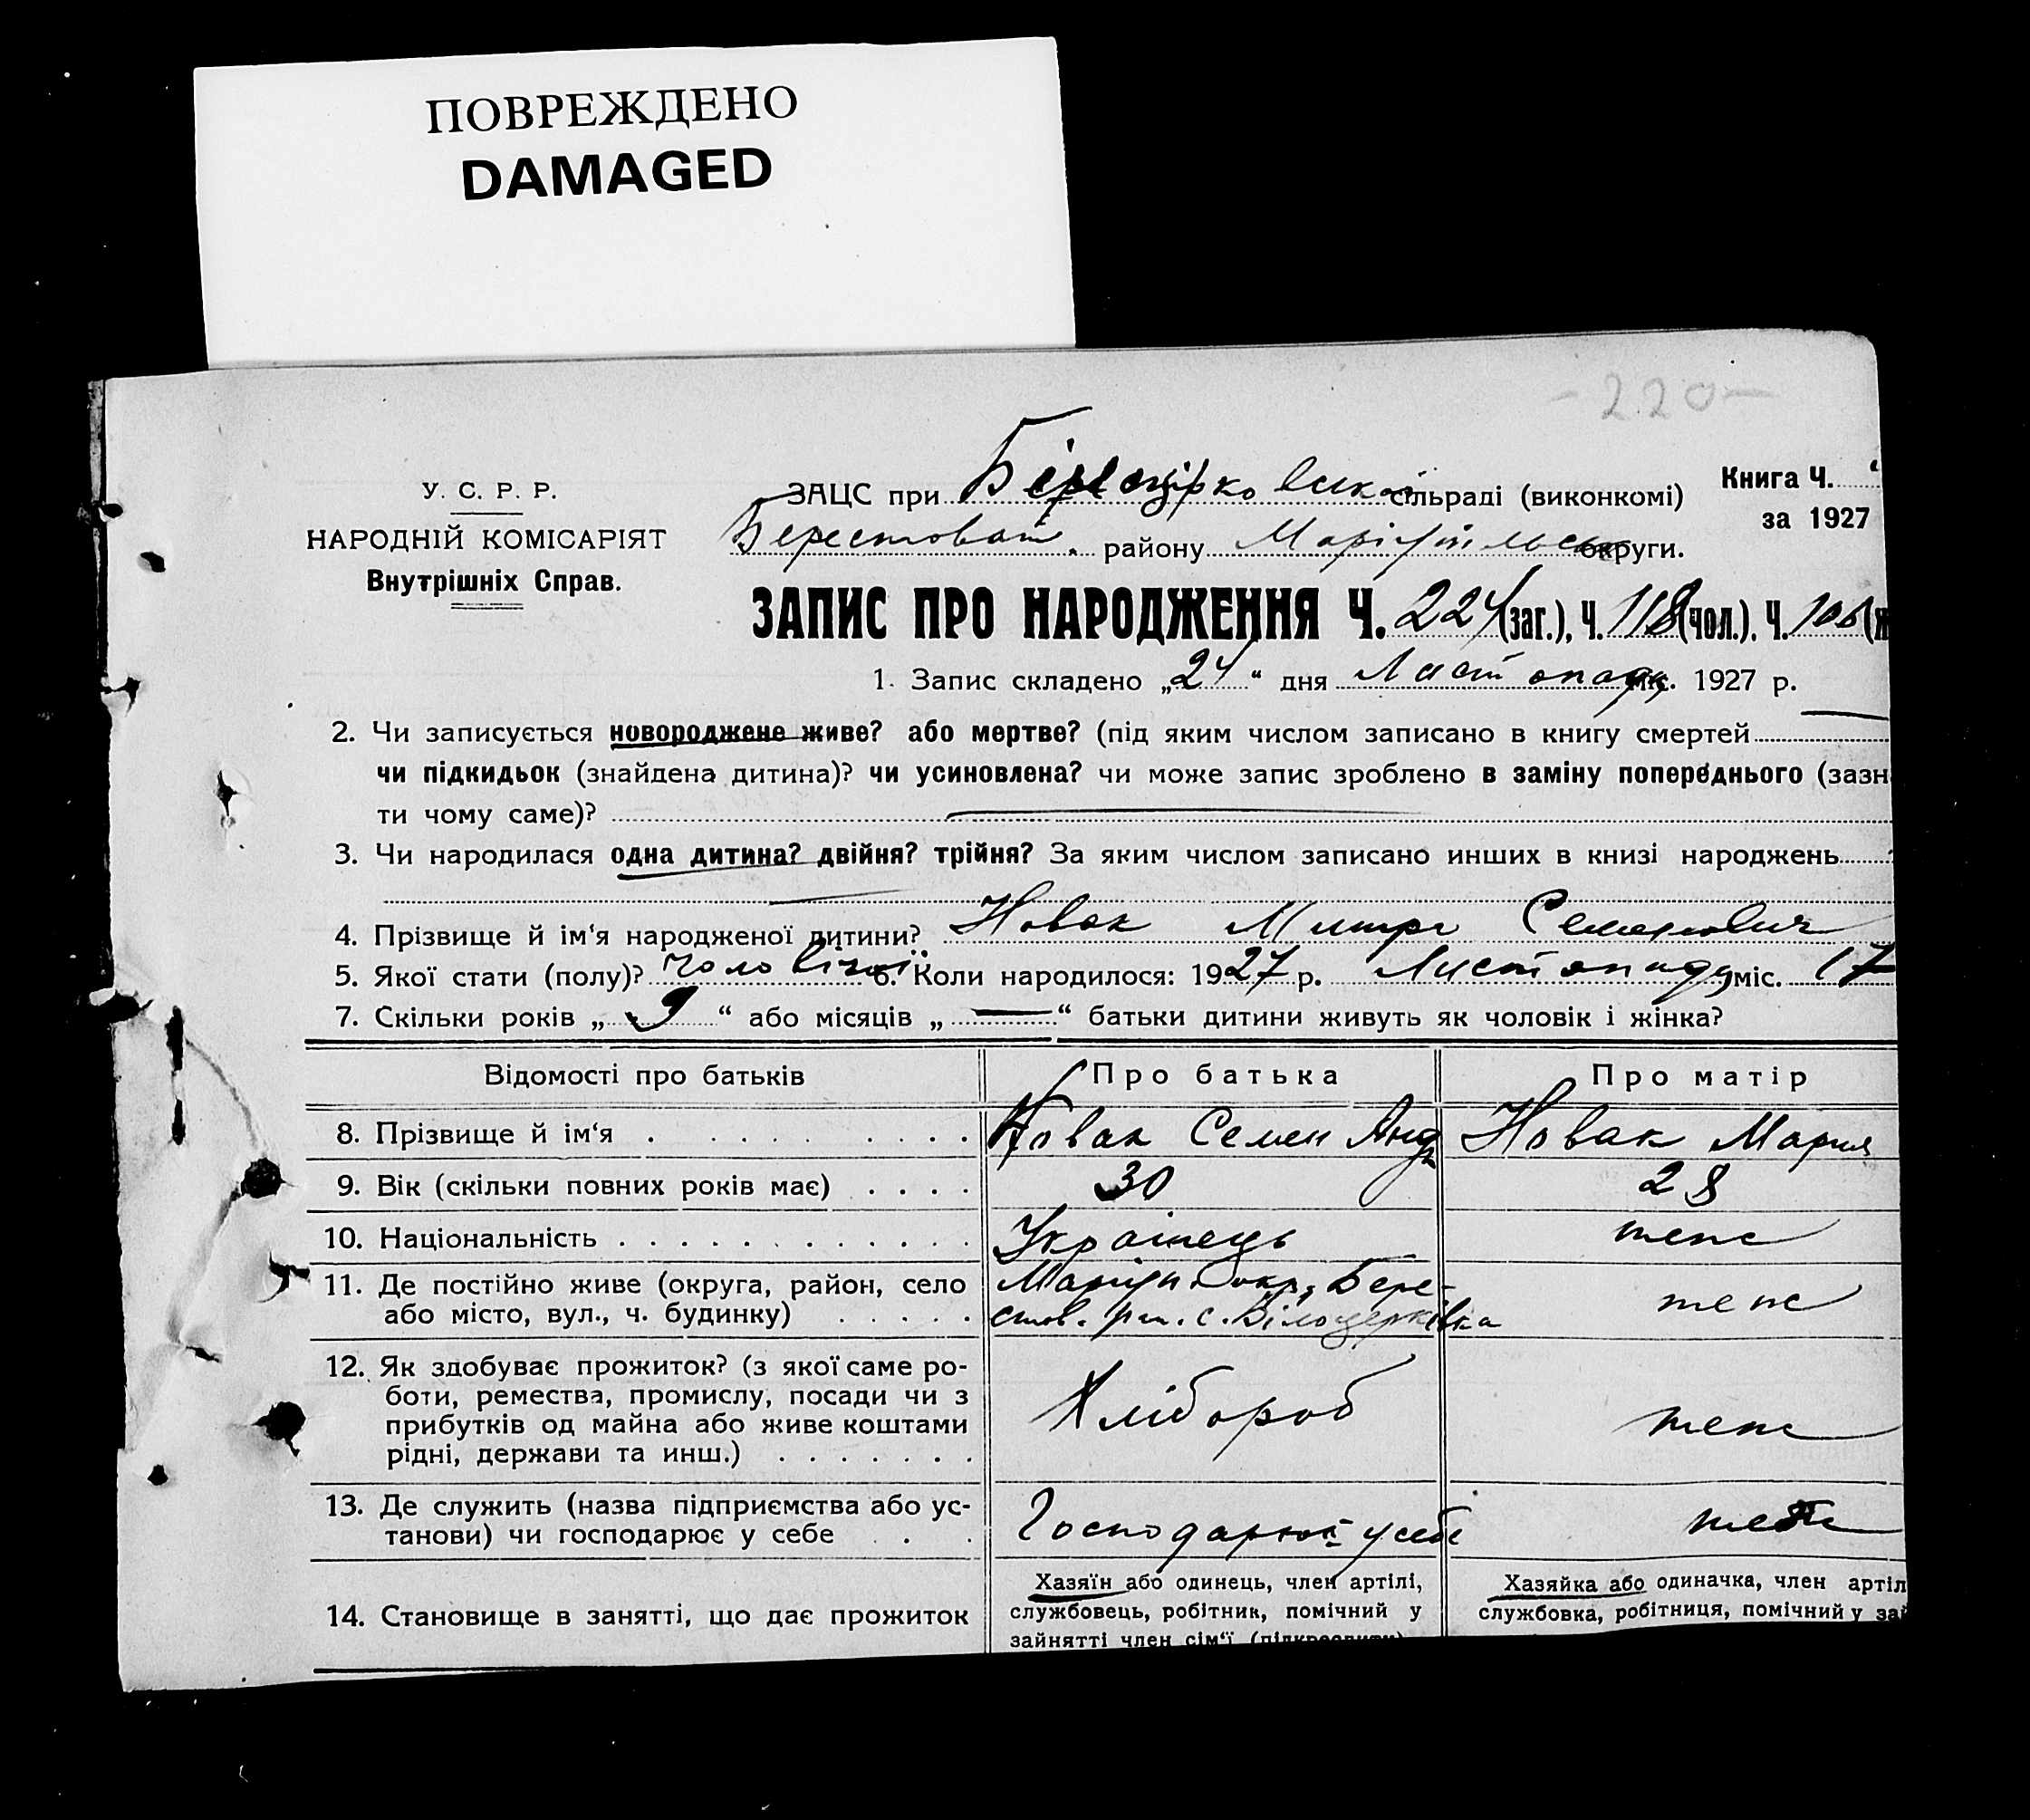 ПОВРЕЖДЕНО
DAMAGED
-220-
У. С. Р. Р.
НАРОДНІЙ КОМІСАРІЯТ
Внутрішніх Справ.
ЗАЦС при сільраді (виконкомі)
Книга Ч.
за 1927
Берестоват. району Маріупільськ округи.
ЗАПИС ПРО НАРОДЖЕННЯ Ч. 224 (заг.), Ч. 118 (чол.). Ч. 106 (ж
1. Запис складено „24“ дня Листопада міс. 1927 р.
2. Чи записується новороджене живе? або мертве? (під яким числом записано в книгу смертей
чи підкидьок (знайдена дитина)? чи усиновлена? чи може запис зроблено в заміну попереднього (зазн
ти чому саме)?
3. Чи народилася одна дитина? двійня? трійня? За яким числом записано инших в книзі народжень
4. Прізвище й ім‘я народженої дитини? Новак Митро Семенович
5. Якої стати (полу)? Чоловічої 6. Коли народилося: 1927 р. Листопаду міс. 17
7. Скільки років „ 9 “ або місяців „ — “ батьки дитини живуть як чоловік і жінка?
Відомості про батьків Про батька Про матір
8. Прізвище й ім‘я Новак Семен Анд Новак Мария
9. Вік (скільки повних років має) 30 28
10. Національність Українець теж
11. Де постійно живе (округа, район, село Маріуп. окр, Бере-
або місто, вул., ч. будинку) стов. рн. с. Білоцерківка теж
12. Як здобуває прожиток? (з якої саме ро-
боти, ремества, промислу, посади чи з
прибутків од майна або живе коштами
рідні, держави та инш.) Хлібороб теж
13. Де служить (назва підприємства або ус-
танови) чи господарює у себе Господарює у себе теж
14. Становище в занятті, що дає прожиток
Хазяїн або одинець, член артілі,
службовець, робітник, помічний у
зайнятті член сім‘ї (підкреслити)
Хазяйка або одиначка, член артіл
службовка, робітниця, помічний у зай